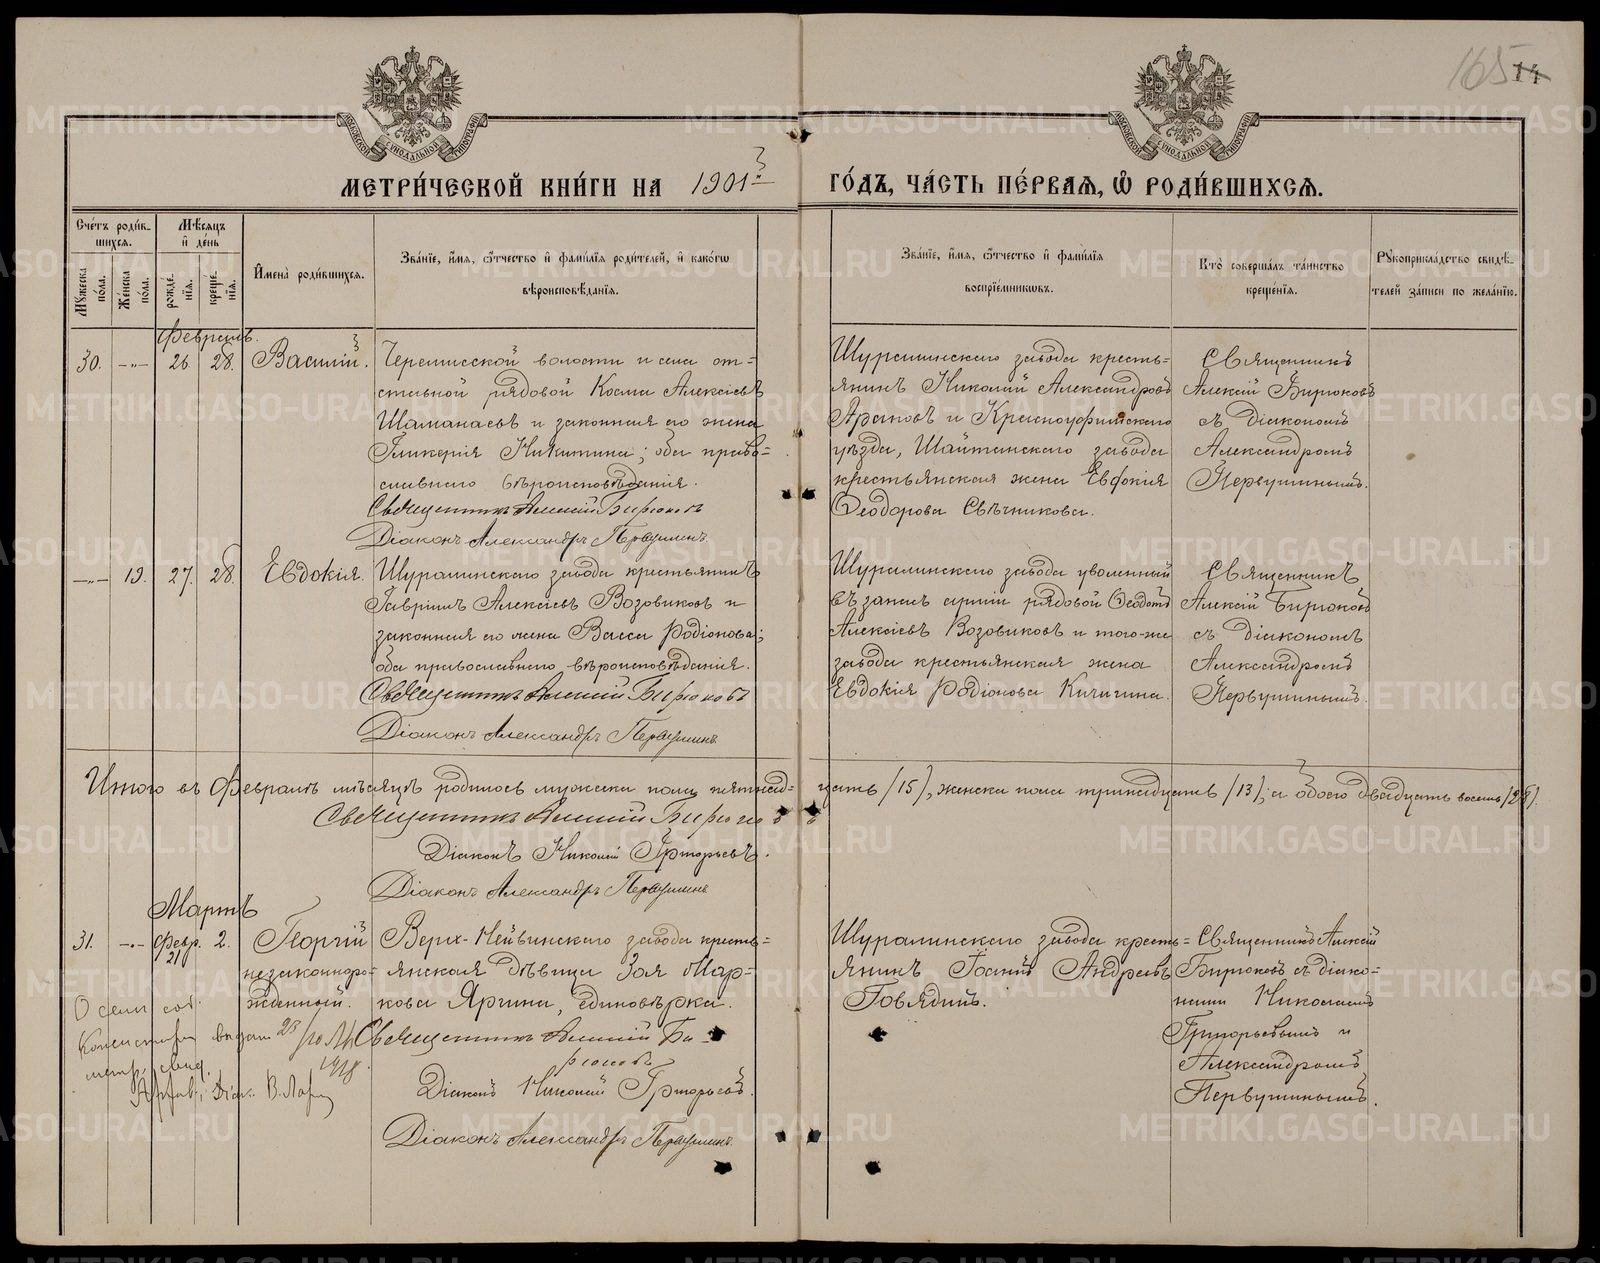 165 14
МЕТРИ́ЧЕСКОЙ КНИ́ГИ НА 1901й ГО́ДЪ, ЧА́СТЬ ПЕ́РВАѦ, Ѽ РОДИ́ВШИХСѦ.
Сче́тъ роди́в-
шихсѧ.
Мꙋжеска по́ла.
Же́нска по́ла.
Мѣ́сѧцъ
и҆ де́нь
рожде́-
нїѧ.
креще́-
нїѧ.
И҆мена̀ роди́вшихсѧ.
Зва́нїе, и҆́мѧ, ѻ҆́тчество и҆ фами́лїѧ роди́телей, и҆ како́гѡ
вѣроисповѣ́данїѧ.
Зва́нїе, и҆́мѧ, ѻ҆́тчество и҆ фами́лїѧ
воспрїе́мникѡвъ.
Кто̀ соверша́лъ та́инство
креще́нїѧ.
Рꙋкоприкла́дство свидѣ́-
телей за́писи по жела́нїю.
Февраль.
30. -"- 26 28. Василій.
Черемисской волости и села от=
ставной рядовой Косма Алексіевъ
Шаманаевъ и законная его жена
Гликерія Никитина; оба право=
славнаго вѣроисповѣданія.
Священникъ Алексій Бирюковъ
Діаконъ Александръ Первушинъ
Шуралинскаго завода кресть=
янинъ Николай Александровъ
Араповъ и Красноуфимскаго
уѣзда, Шайтанскаго завода
крестьянская жена Евфокія
Ѳеодорова Свѣчникова.
Священникъ
Алексій Бирюковъ
съ діакономъ
Александромъ
Первушинымъ.
-"- 19. 27. 28. Евдокія.
Шуралинскаго завода крестьянинъ
Гавріилъ Алексіевъ Возовиковъ и
законная его жена Васса Родіонова;
оба православнаго вѣроисповѣданія.
Священникъ Алексій Бирюковъ
Діаконъ Александръ Первушинъ
Шуралинскаго завода уволенный
въ запасъ арміи рядовой Ѳеодотъ
Алексіевъ Возовиковъ и того-же
завода крестьянская жена
Евдокія Родіонова Кичигина.
Священникъ
Алексій Бирюковъ
съ діакономъ
Александромъ
Первушинымъ.
Итого въ Февралѣ мѣсяцѣ родилось мужска пола пятнад=цать /15/, женска пола тринадцать /13/, а обоего двадцать восемь /28/.
Священникъ Алексій Бирюковъ
Діаконъ Николай Григорьевъ.
Діаконъ Александръ Первушинъ
Мартъ
31. -"- Февр. 21 2. Георгій
незаконноро=
жденный.
Верх-Нейвинскаго завода кресть=
янская дѣвица Зоя Мар=
кова Яргина, единовѣрка.
Священникъ Алексій Би-
рюковъ
Діаконъ Николай Григорьевъ.
Діаконъ Александръ Первушинъ.
Шуралинскаго завода кресть=
янинъ Іоаннъ Андреевъ
Говядинъ.
Священникъ Алексій
Бирюковъ съ діако=
нами Николаемъ
Григорьевымъ и
Александромъ
Первушинымъ.
О семъ
выдан 28
метр. свид.
1918
METRIKI.GASO-URAL.RU